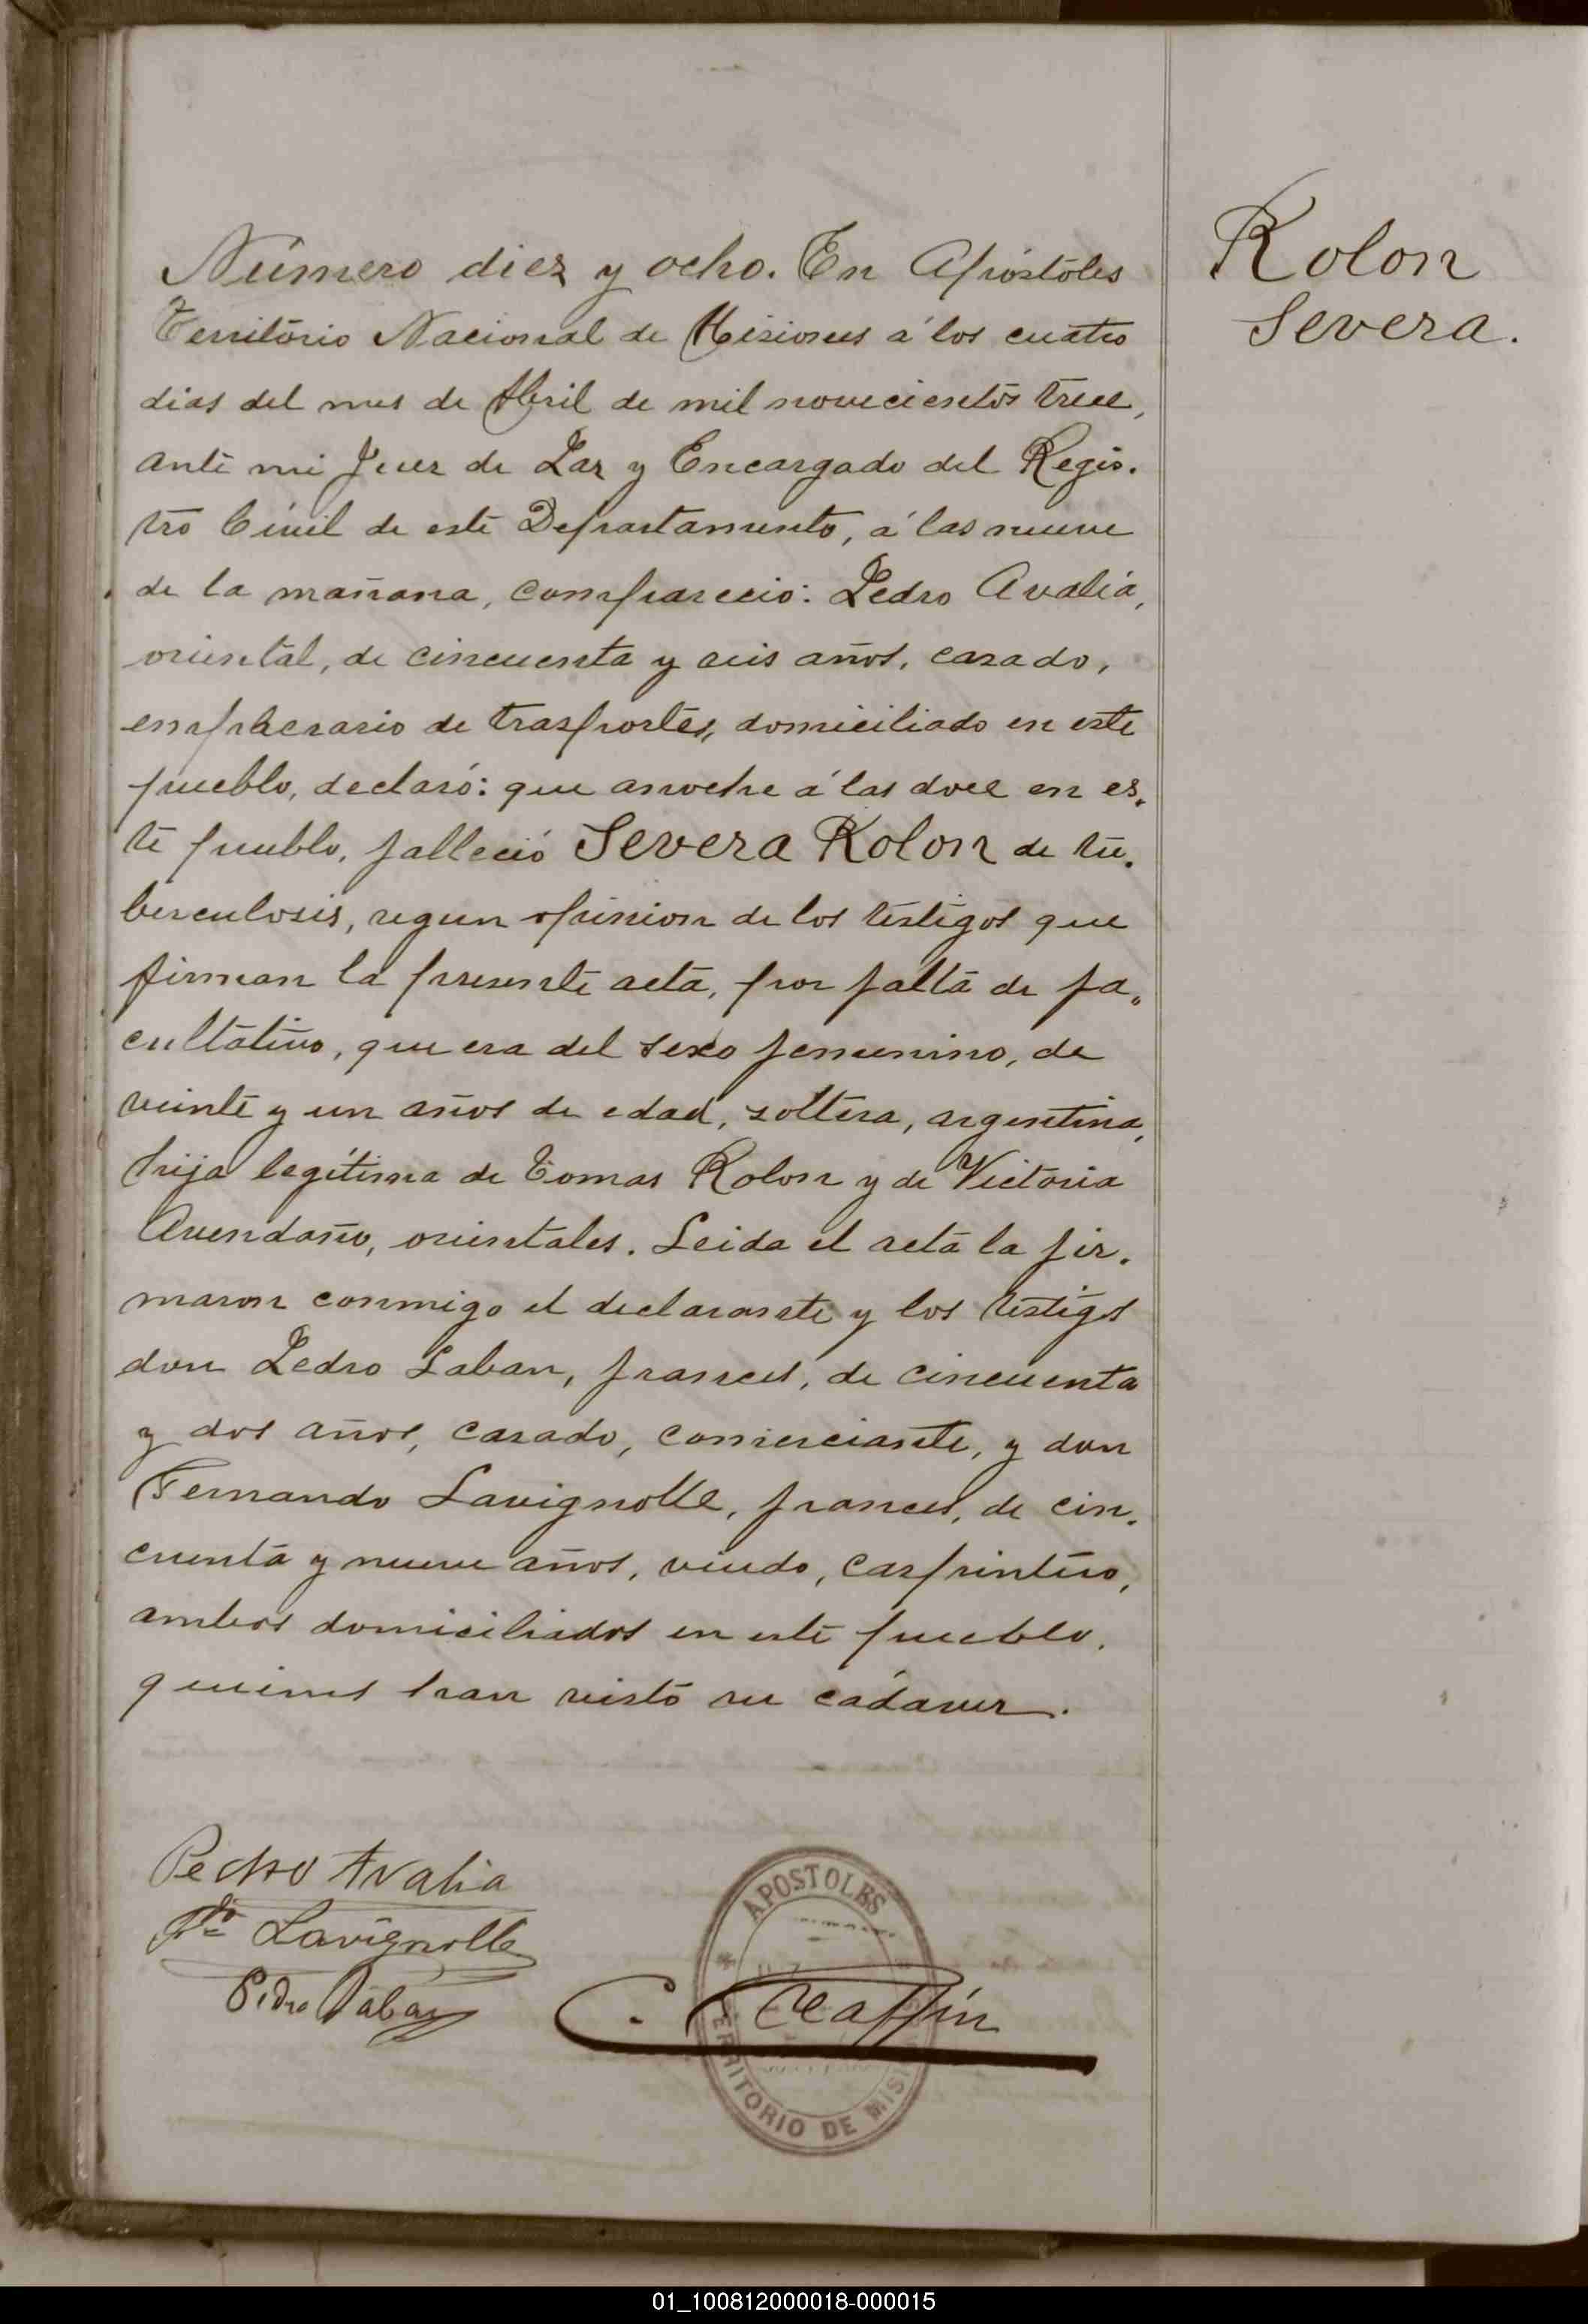 Número diez y ocho. En Apóstoles
Territorio Nacional de Misiones á los cuatro
dias del mes de Abril de mil novecientos trece,
ante mi Juez de Paz y Encargado del Regis.
tro Civil de este Departamento, á las nueve
de la mañana, compareció: Pedro Avalia,
oriental, de cincuenta y seis años, casado,
empresario de trasportes, domiciliado en este
pueblo, declaró: que anoche á las doce en es.
te pueblo, falleció Severa Rolon de tu.
berculosis, segun opinion de los testigos que
firman la presente acta, por falta de fa.
cultativo, que era del sexo femenino, de
veinte y un años de edad, soltera, argentina,
hija legítima de Tomas Rolon y de Victoria
Avendaño, orientales. Leida el acta la fir.
maron conmigo el declarante y los testigos
don Pedro Laban, frances, de cincuenta
y dos años, casado, comerciante, y don
Fernando Lavignolle, frances, de cin.
cuenta y nueve años, viudo, carpintero,
ambos domiciliados en este pueblo,
quienes han visto su cadáver.
Rolon
Severa.
Pedro Avalia
Fdo Lavignolle
Pedro Laban
APOSTOLES
TERRITORIO DE MISI
01_100812000018-000015